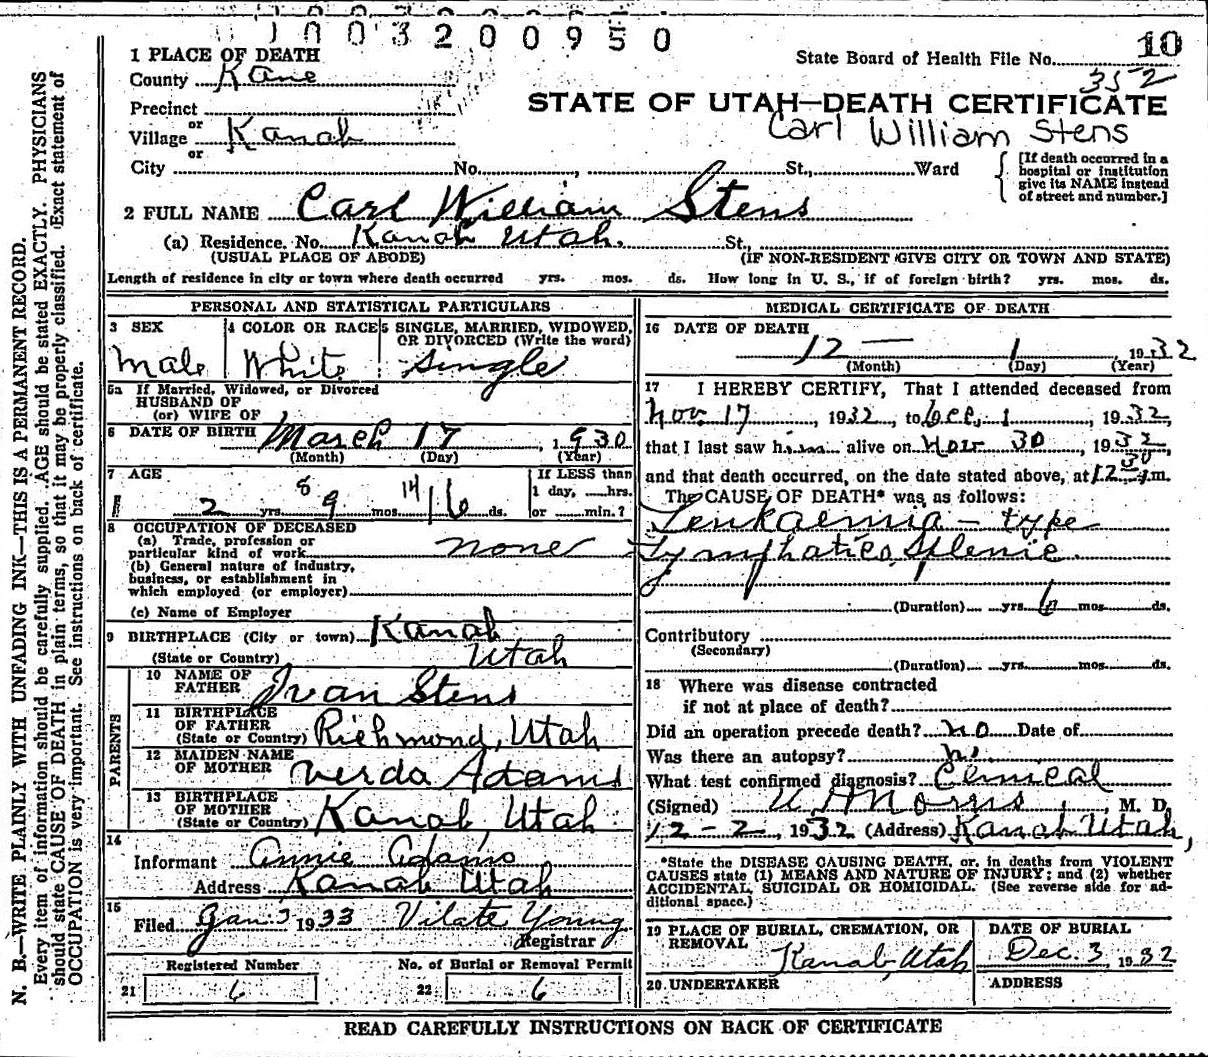 1003200950
1 PLACE OF DEATH
State Board of Health File No. 10
County Kane
352
Precinct
STATE OF UTAH—DEATH CERTIFICATE
or
Village Kanab
Carl William Stens
or
City No. St., Ward
[If death occurred in a
hospital or institution
give its NAME instead
of street and number.]
2 FULL NAME Carl William Stens
(a) Residence. No. Kanab Utah. St.,
(USUAL PLACE OF ABODE) (IF NON-RESIDENT GIVE CITY OR TOWN AND STATE)
Length of residence in city or town where death occurred yrs. mos. ds. How long in U. S., if of foreign birth? yrs. mos. ds.
PERSONAL AND STATISTICAL PARTICULARS
3 SEX
Male
4 COLOR OR RACE
White
5 SINGLE, MARRIED, WIDOWED,
OR DIVORCED (Write the word)
Single
5a If Married, Widowed, or Divorced
HUSBAND OF
(or) WIFE OF
6 DATE OF BIRTH March 17, 1930
(Month) (Day) (Year)
7 AGE
If LESS than
1 day, hrs.
or min.?
8 14
2 yrs. 9 mos. 16 ds.
8 OCCUPATION OF DECEASED
(a) Trade, profession or
particular kind of work none
(b) General nature of industry,
business, or establishment in
which employed (or employer)
(c) Name of Employer
9 BIRTHPLACE (City or town) Kanab
(State or Country) Utah
PARENTS
10 NAME OF
FATHER Ivan Stens
11 BIRTHPLACE
OF FATHER
(State or Country) Richmond, Utah
12 MAIDEN NAME
OF MOTHER Verda Adams
13 BIRTHPLACE
OF MOTHER
(State or Country) Kanab, Utah
14
Informant Annie Adams
Address Kanab Utah
15
Filed Jan. 3 1933 Vilate Young
Registrar
Registered Number No. of Burial or Removal Permit
21 6 22 6
MEDICAL CERTIFICATE OF DEATH
16 DATE OF DEATH
12 — 1, 1932
(Month) (Day) (Year)
17 I HEREBY CERTIFY, That I attended deceased from
Nov. 17, 1932, to Dec. 1, 1932,
that I last saw him alive on Nov 30, 1932,
and that death occurred, on the date stated above, at 12 30 m.
The CAUSE OF DEATH* was as follows:
Leukaemia - type
Lymphatico Splenic.
(Duration) yrs. 6 mos. ds.
Contributory
(Secondary)
(Duration) yrs. mos. ds.
18 Where was disease contracted
if not at place of death?
Did an operation precede death? no Date of
Was there an autopsy? no
What test confirmed diagnosis? Clinical
(Signed) Norris, M. D.
12-2, 1932 (Address) Kanab Utah,
*State the DISEASE CAUSING DEATH, or, in deaths from VIOLENT
CAUSES state (1) MEANS AND NATURE OF INJURY; and (2) whether
ACCIDENTAL, SUICIDAL OR HOMICIDAL. (See reverse side for ad-
ditional space.)
19 PLACE OF BURIAL, CREMATION, OR
REMOVAL
Kanab, Utah
DATE OF BURIAL
Dec. 3, 1932
20 UNDERTAKER ADDRESS
READ CAREFULLY INSTRUCTIONS ON BACK OF CERTIFICATE
N. B.—WRITE PLAINLY WITH UNFADING INK—THIS IS A PERMANENT RECORD.
Every item of information should be carefully supplied. AGE should be stated EXACTLY. PHYSICIANS
should state CAUSE OF DEATH in plain terms, so that it may be properly classified. Exact statement of
OCCUPATION is very important. See instructions on back of certificate.